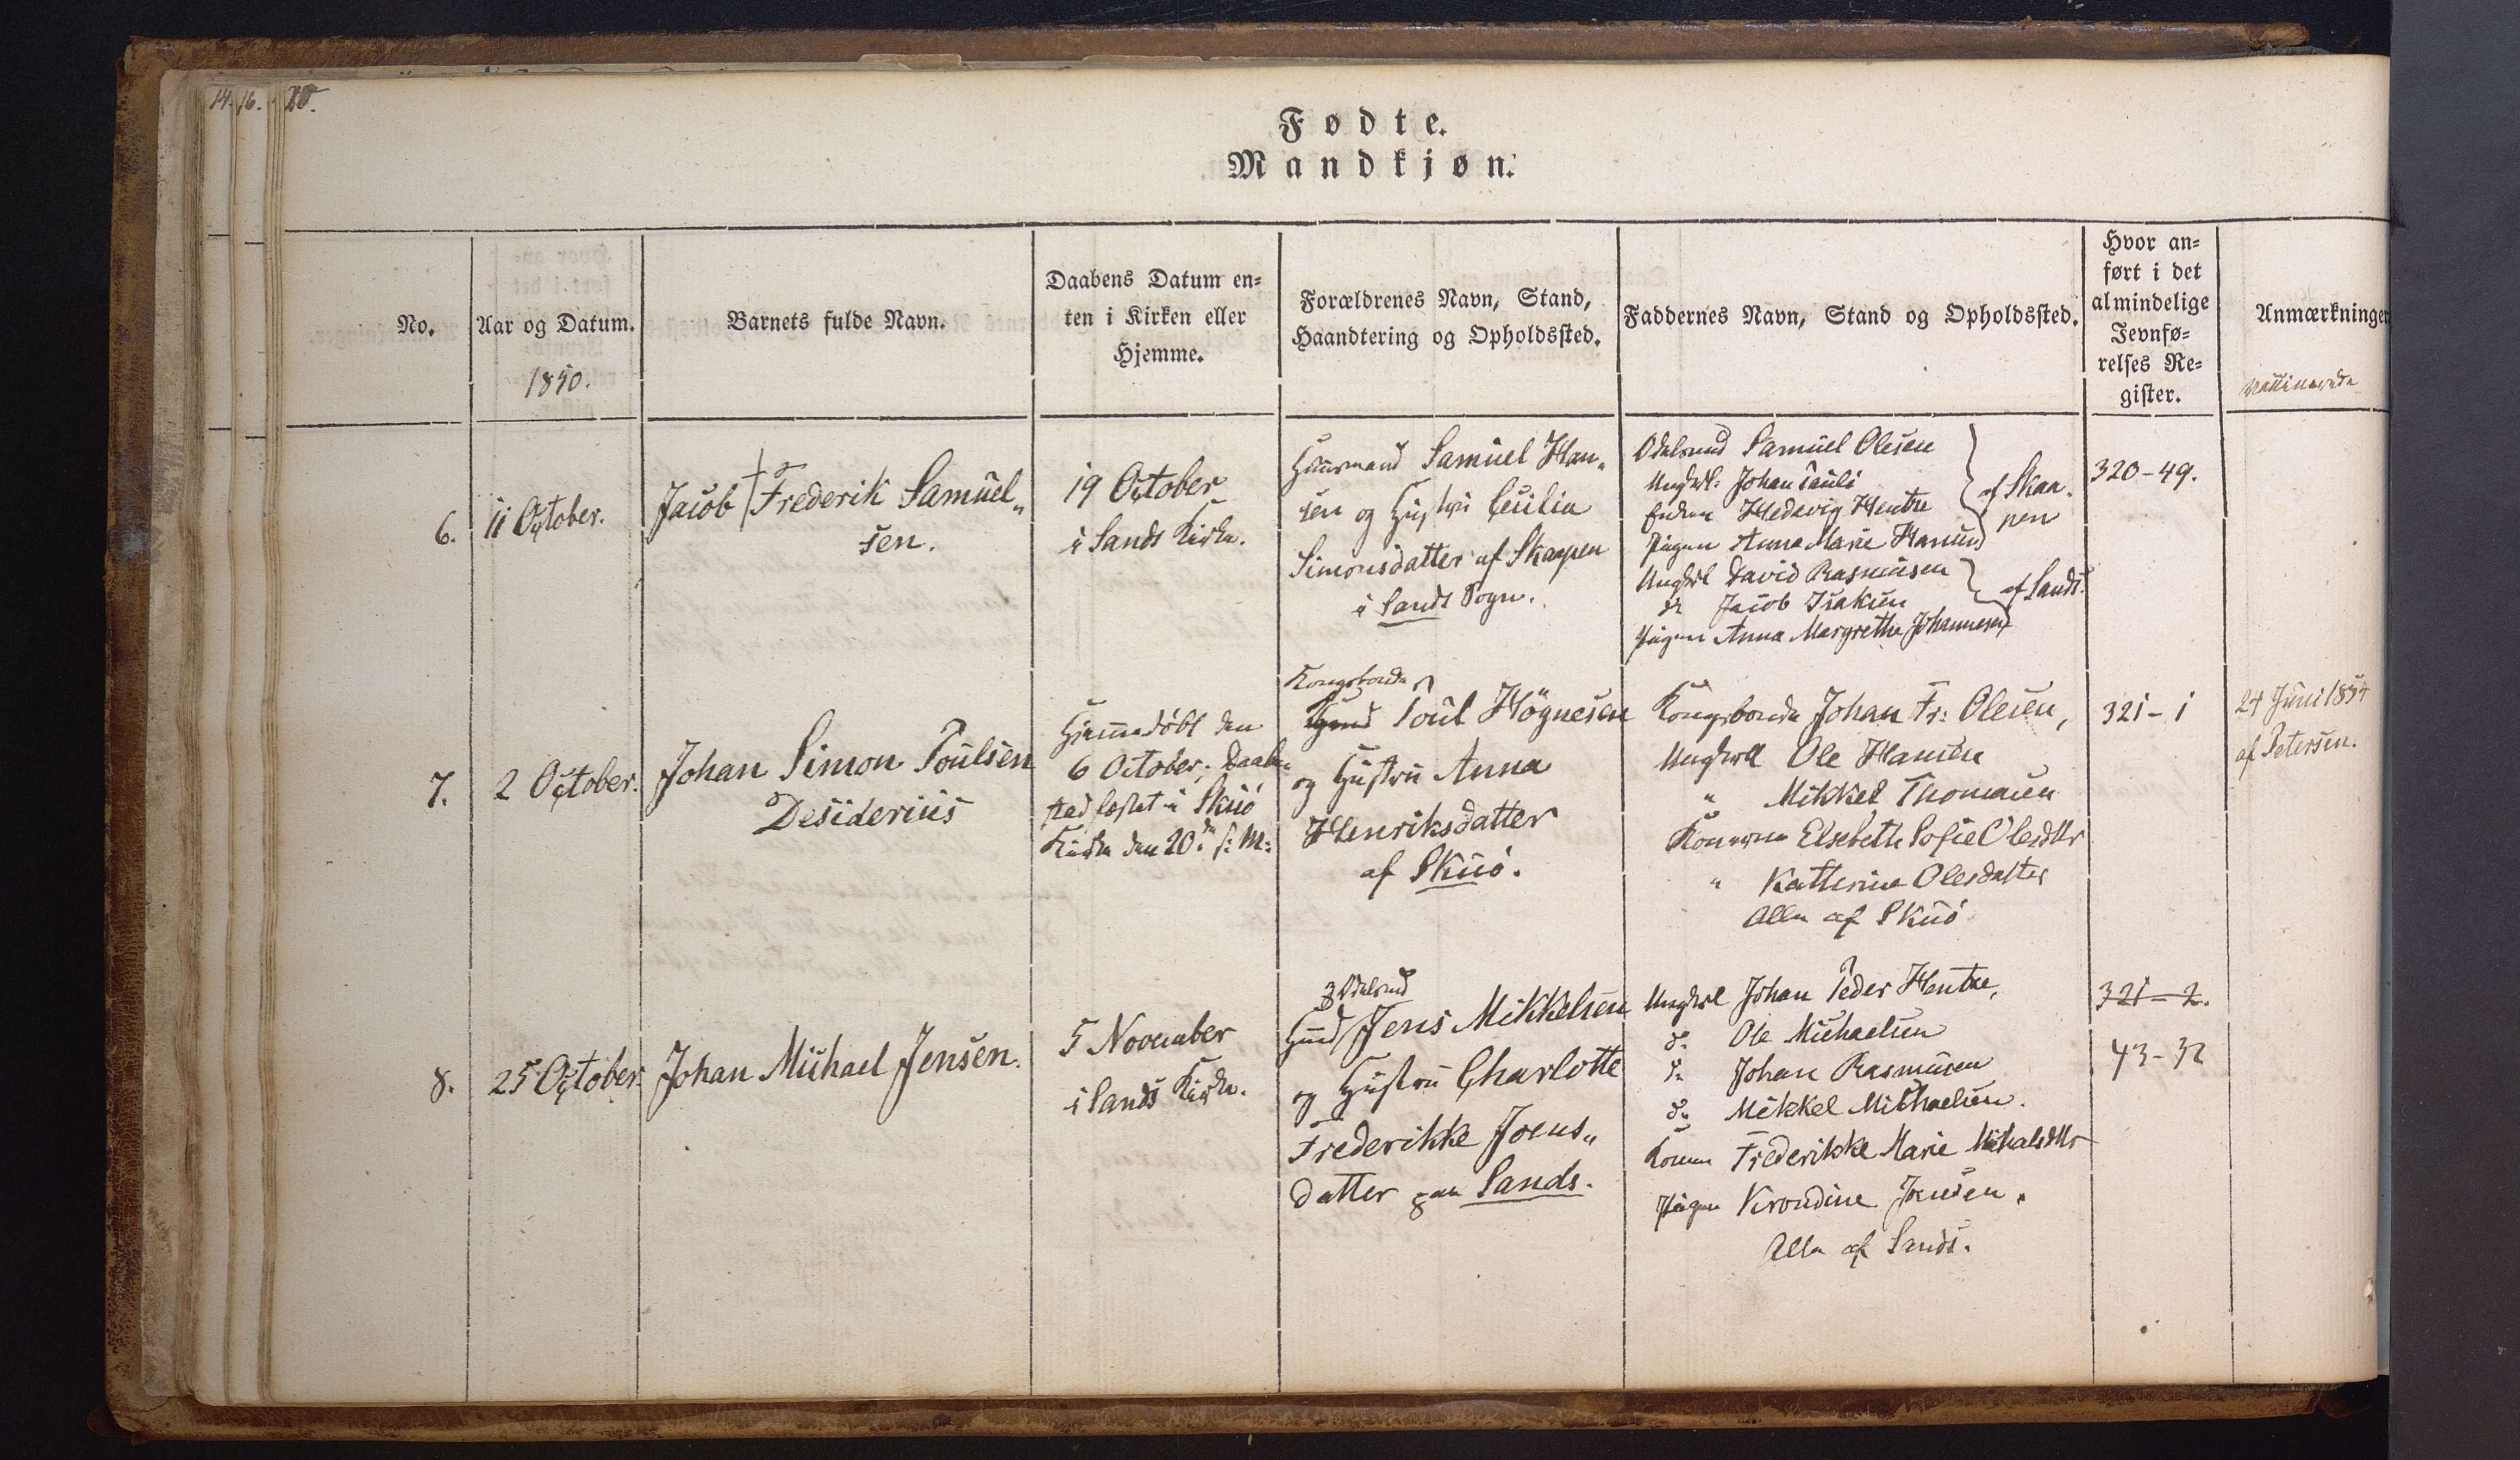 14. 16. 20.
Fødte.
Mandkjøn.
No.
Aar og Datum.
1850.
Barnets fulde Navn.
Daabens Datum en-
ten i Kirken eller
Hjemme.
Forældrenes Navn, Stand,
Haandtering og Opholdssted.
Faddernes Navn, Stand og Opholdssted.
Hvor an-
ført i det
almindelige
Jevnfø-
relses Re-
gister.
Anmærkninger
6.
11 October.
Jacob Frederik Samuel"
sen.
19 October
i Sands Kirke.
Huusmand Samuel Han"
sen og Hustru Cecilia
Simonsdatter af Skaapen
i Sands Sogn.
Odelsmd Samuel Olesen
Ungkrl: Johan Pauli
Enken Hedevig Hentze
Pigen Anna Marie Hansen
af Skaa-
pen
Ungkrl David Rasmusen
do Jacob Isaksen
Pigen Anna Margrethe Johannesen
af Sands.
320-49.
7.
2 October.
Johan Simon Poulsen
Desiderius
Hjemmedöbt den
6 October; Daaben
stadfæstet i Skuö
Kirke den 20de s: M:
Kongsbonde
Poul Högnesen
og Hustru Anna
Henriksdatter
af Skuö.
Kongsbonde Johan Fr: Olesen,
Ungkrll Ole Hansen
" Mikkel Thomasen
Konerne Elsebeth Sofie Olesdtr
" Katterine Olesdatter
Alle af Skuö
321-1
24 Juni 1854
af Petersen.
8.
25 October.
Johan Michael Jensen.
5 November
i Sands Kirke.
Odelsmd
Jens Mikkelsen
og Hustru Charlotte
Frederikke Joens"
datter paa Sands.
Ungkrl Johan Peder Hentze,
do Ole Michaelsen
do Johan Rasmusen
do Mikkel Michaelsen.
Konen Frederikke Marie Michalsdtr
Pigen Krondine Jensen.
Alle af Sands.
321-2.
43-32